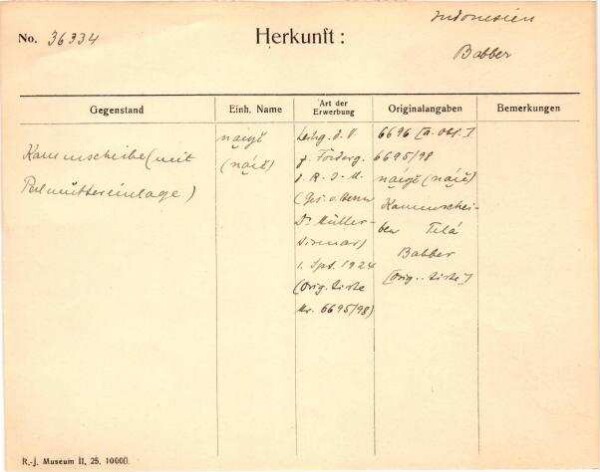 No. 36334
Herkunft:
Indonesien
Babber
Gegenstand
Einh. Name
Art der Erwerbung
Originalangaben
Bemerkungen
Kammscheibe (mit
Perlmuttereinlage)
Leihg. d. V.
z. Förderg.
d. R. J. M.
(Ges. v. Herrn
Dr Müller-
Wismar)
1. Spt. 1924
(Orig. Liste
Nr. 6695/98)
6696 [a. Obj.]
6695/98
Kammschei-
ben Telá
Babber
[Orig. Liste]
R.-j. Museum II, 25. 10000.